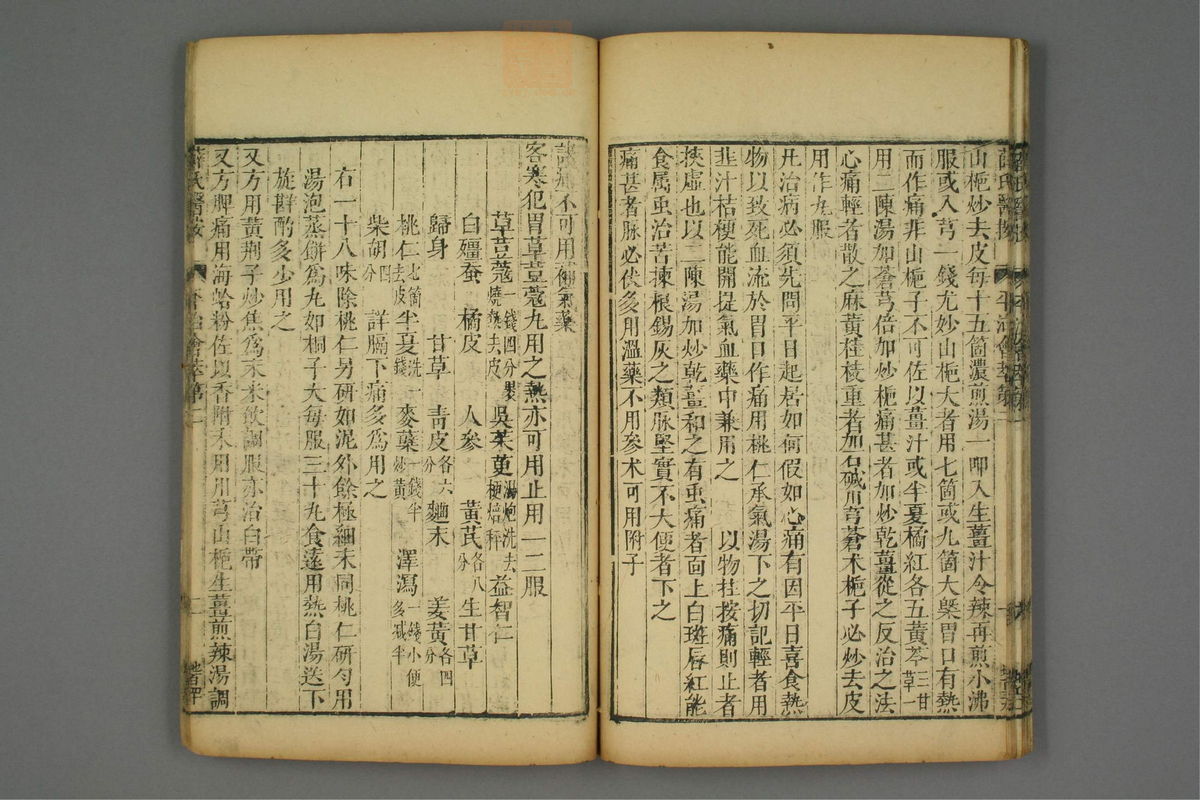 山梔炒去皮每十五箇濃煎湯一呷入生薑汁令辣再煎小沸
服或入芎一錢尤妙山梔大者用七箇或九箇大槩胃口有熱
而作痛非山梔子不可佐以薑汁或半夏橘紅各五黃芩三甘草一
用二陳湯加蒼芎倍加炒梔痛甚者加炒乾薑從之反治之法
心痛輕者散之麻黃桂枝重者加石碱川芎蒼朮梔子必炒去皮
用作丸服
凡治病必須先問平日起居如何假如心痛有因平日喜食熱
物以致死血流於胃口作痛用桃仁承氣湯下之切記輕者用
韭汁桔梗能開提氣血藥中兼用之 以物拄按痛則止者
挾虛也以二陳湯加炒乾薑和之有虫痛者面上白斑唇紅能
食属虫治苦揀根錫灰之類脉堅實不大便者下之
痛甚者脉必伏多用溫藥不用參朮可用附子
諸痛不可用補氣藥
客寒犯胃草荳蔻丸用之熱亦可用止用一二服
草荳蔻一錢四分裂燒熱去皮 吳茱萸湯炮洗去梗焙秤 益智仁
白殭蚕 橘皮 人參 黃芪各八分 生甘草
歸身 甘草 靑皮各六分 麯末 姜黃各四分
桃仁七箇去皮 半夏洗一錢 麥蘖一錢半炒黃 澤瀉一錢小便多减半
柴胡四分 詳膈下痛多爲用之
右一十八味除桃仁另研如泥外餘極細末同桃仁研勻用
湯泡蒸餅爲丸如桐子大每服三十丸食遠用熱白湯送下
旋斟酌多少用之
又方用黃荆子炒焦爲末米飲調服亦治白帶
又方脾痛用海蛤粉佐以香附末用川芎山梔生薑煎辣湯調
薛氏醫按